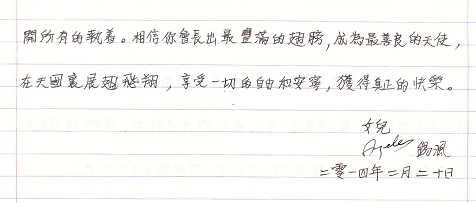 開所有的執着。相信你會長出最豐滿的翅膀,成為最善良的天使,
在天國裏展翅飛翔,享受一切的自由和安寧,獲得真正的快樂。
女兒
二零一四年二月二十日